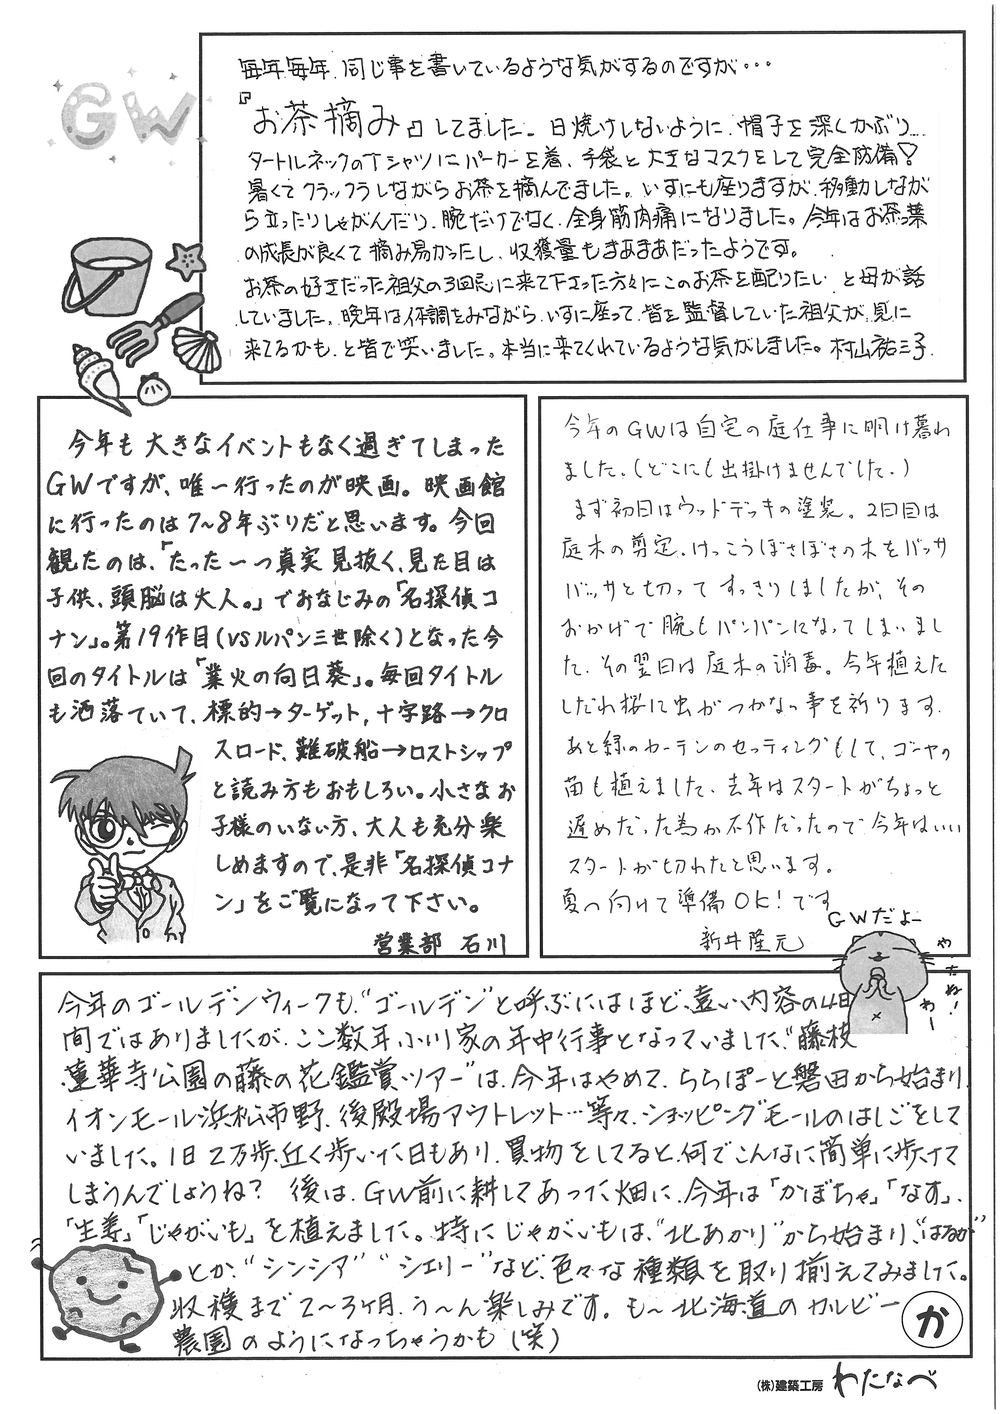 GW
毎年毎年、同じ事を書いているような気がするのですが・・・
『お茶摘み』してました。日焼けしないように、帽子を深くかぶり…
タートルネックのTシャツにパーカーを着、手袋と大きなマスクをして完全防備!
暑くてクラックラしながらお茶を摘んでました。いすにも座りますが、移動しなが
ら立ったりしゃがんだり、腕だけでなく、全身筋肉痛になりました。今年はお茶っ葉
の成長が良くて摘み易かったし、収獲量もまあまあだったようです。
お茶の好きだった祖父の3回忌に来て下さった方々にこのお茶を配りたい と母が話
していました。晩年は体調をみながら、いすに座って、皆を監督していた祖父が、見に
来てるかも、と皆で笑いました。本当に来てくれているような気がしました。村山祐三子
今年も大きなイベントもなく過ぎてしまった
GWですが、唯一行ったのが映画。映画館
に行ったのは7~8年ぶりだと思います。今回
観たのは、「たった一つ真実見抜く、見た目は
子供、頭脳は大人。」でおなじみの「名探偵コ
ナン」。第19作目(VSルパン三世除く)となった今
回のタイトルは「業火の向日葵」。毎回タイトル
も洒落ていて、標的→ターゲット, 十字路→クロ
スロード、難破船→ロストシップ
と読み方もおもしろい。小さなお
子様のいない方、大人も充分楽
しめますので、是非「名探偵コナ
ン」をご覧になって下さい。
営業部 石川
今年のGWは自宅の庭仕事に明け暮れ
ました。(どこにも出掛けませんでした。)
まず初日はウッドデッキの塗装。2日目は
庭木の剪定、けっこうぼさぼさの木をバッサ
バッサと切ってすっきりしましたが、その
おかげで腕もパンパンになってしまいまし
た、その翌日は庭木の消毒。今年植えた
しだれ桜に虫がつかなっ事を祈ります。
あと緑のカーテンのセッティングもして、ゴーヤの
苗も植えました、去年はスタートがちょっと
遅めだった為か不作だったので今年はいい
スタートが切れたと思います。
夏へ向けて準備OK!です
新井隆元
GWだよー
やったね!
わー
今年のゴールデンウィークも、“ゴールデン”と呼ぶにはほど遠い内容の4日
間ではありましたが、ここ数年小川家の年中行事となっていました、“藤枝
蓮華寺公園の藤の花鑑賞ツアー”は、今年はやめて、ららぽーと磐田から始まり、
イオンモール浜松市野、後殿場アウトレット…等々、ショッピングモールのはしごをして
いました。1日2万歩近く歩いた日もあり、買物をしてると、何でこんなに簡単に歩けて
しまうんでしょうね? 後は、GW前に耕してあった畑に、今年は「かぼちゃ」「なす」、
「生姜」「じゃがいも」を植えました。特にじゃがいもは、“北あかり”から始まり、“はるか”
とか、“シンシア” “シェリー”など、色々な種類を取り揃えてみました。
収穫まで2~3ヶ月、う~ん楽しみです。も~北海道のカルビー
農園のようになっちゃうかも(咲)
か
(株)建築工房 わたなべ